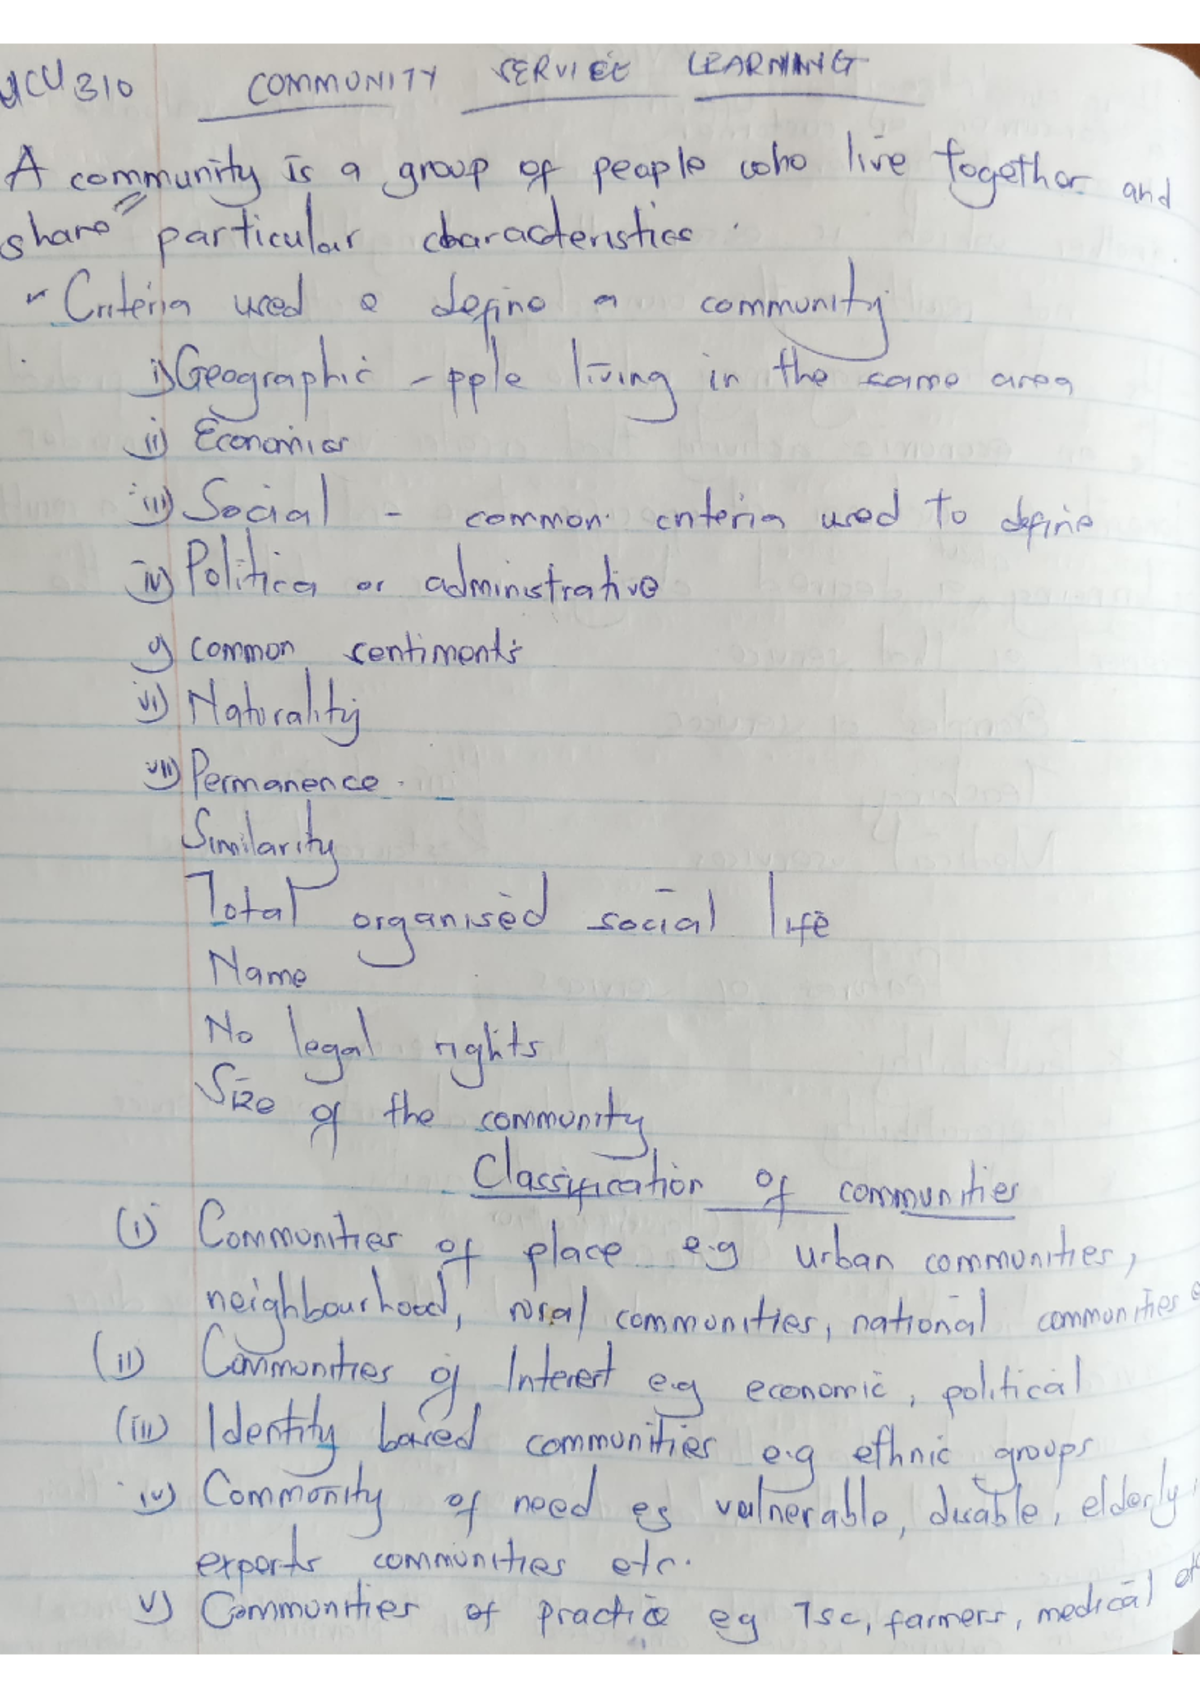 UCU 310 COMMUNITY SERVICE LEARNING
A community is a group of people who live together and
share particular characteristics.
Criteria used to define a community
i) Geographic - pple living in the same area
ii) Economics
iii) Social - common criteria used to define
iv) Politica or administrative
v) common sentiments
vi) Naturality
vii) Permanence.
Similarity
Total organised social life
Name
No legal rights
Size of the community
Classification of communities
(i) Communities of place e.g urban communities,
neighbourhood, rural communities, national communities
(ii) Communities of Interest e.g economic, political
(iii) Identity based communities e.g ethnic groups
iv) Community of need eg vulnerable, disable, elderly,
experts communities etc.
v) Communities of practice eg Tsc, farmers, medical etc